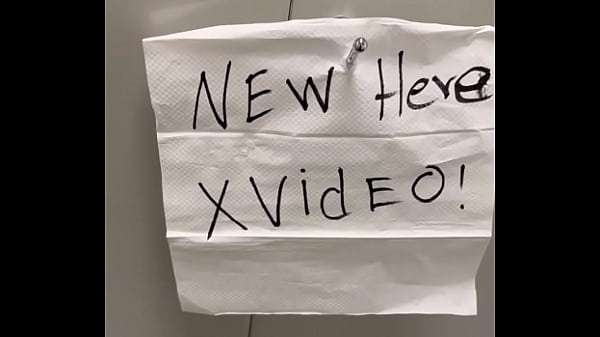 NEW Here
XVidEO!